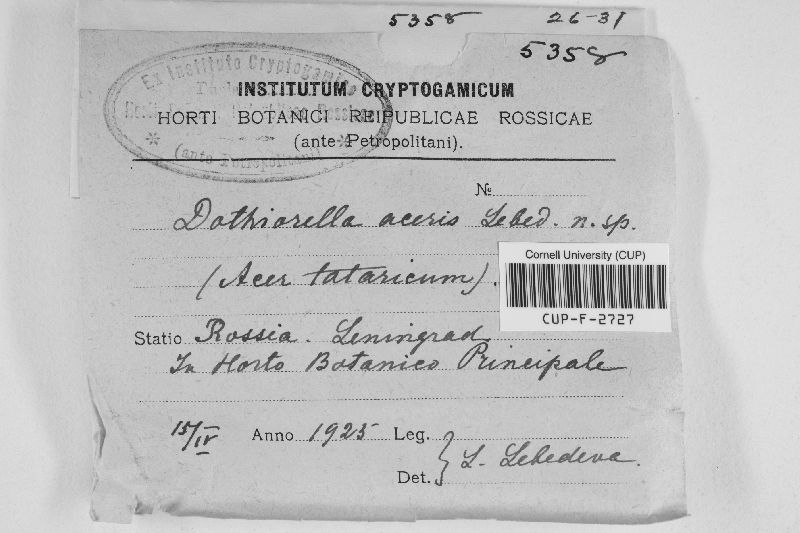 5358 26-31
5358
Ex Instituto Cryptogamico
(ante Petropolitani)
INSTITUTUM CRYPTOGAMICUM
HORTI BOTANICI REIPUBLICAE ROSSICAE
(ante Petropolitani).
№
Dothiorella aceris Lebed. n. sp.
(Acer tataricum).
Cornell University (CUP)
CUP-F-2727
Statio Rossia. Leningrad
In Horto Botanico Principale
15/IV Anno 1925 Leg.
Det. } L. Lebedeva.